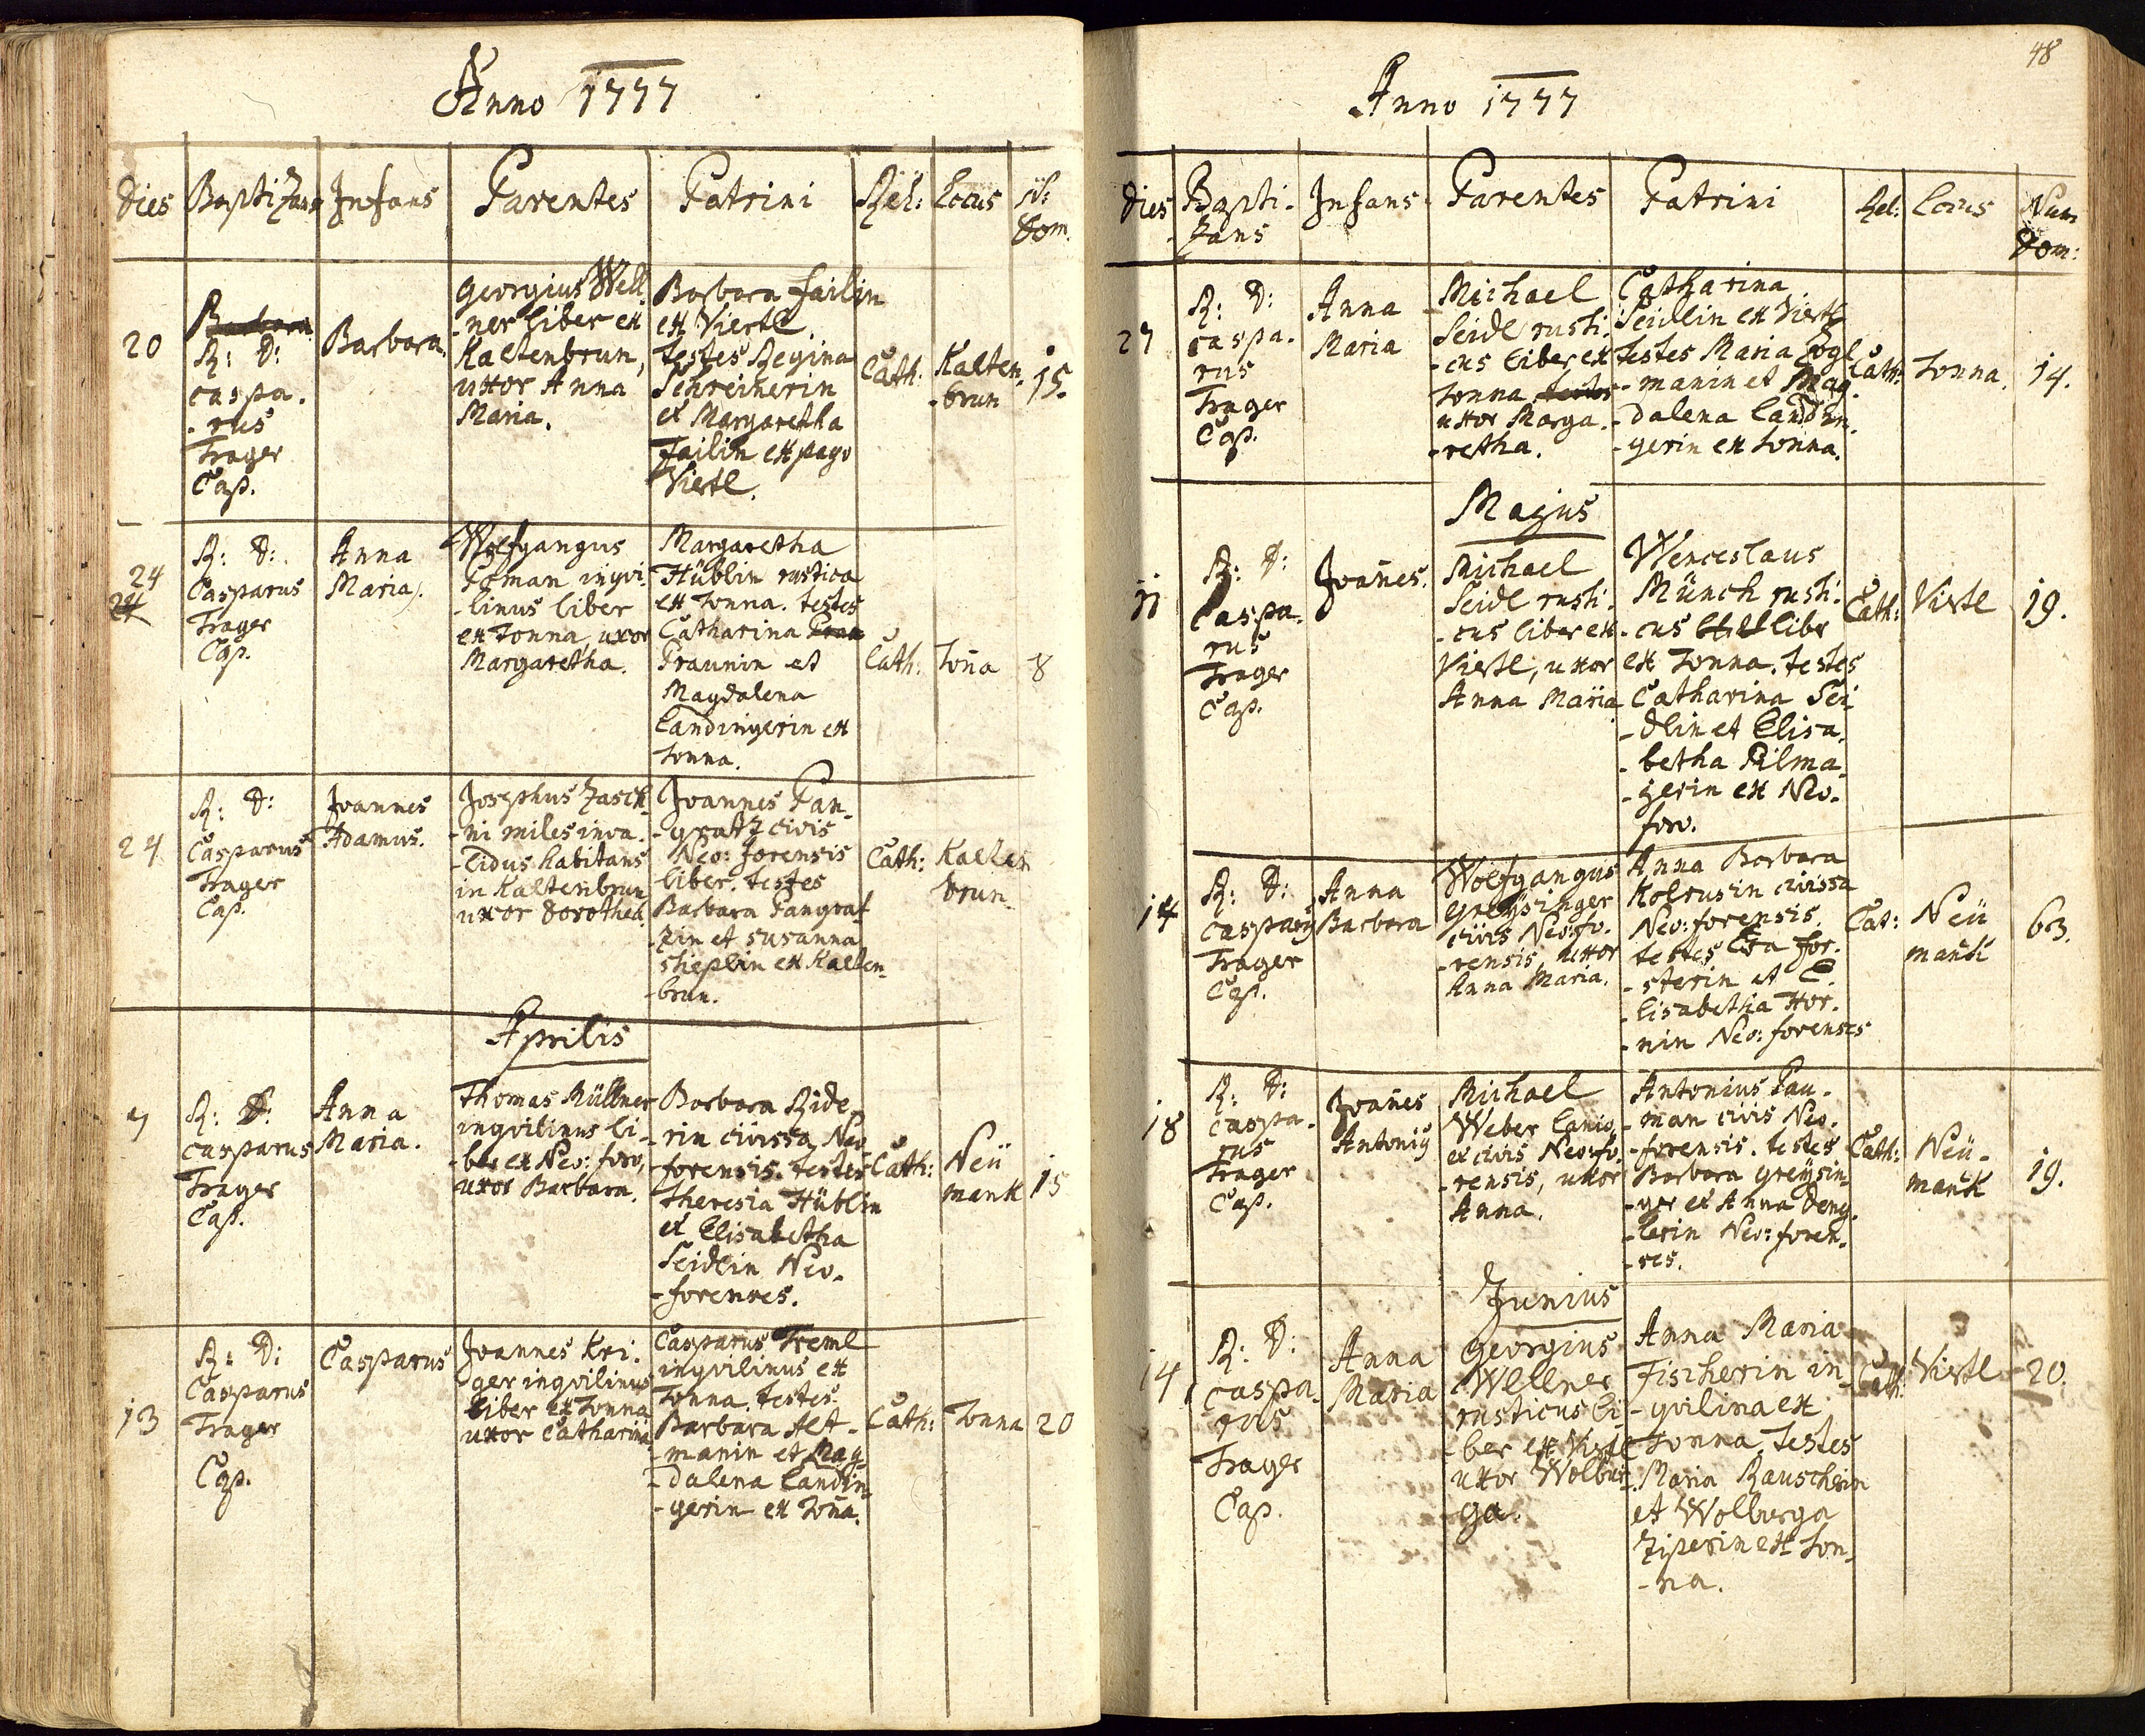 Anno 1777
Dies Baptizans Infans Parentes Patrini Rel: Locus N: Dom.
20
Barbara
R: D:
caspa.
-rus
Trager
Cap.
Barbara.
Georgius Well
-ner liber ex
Kaltenbrun,
uxor Anna
Maria.
Barbara failin
ex Viertl.
testes Regina
Schreinerin
et Margaretha
Failin ex pago
Viertl.
Cath:
Kalten-
-brun
15.
24
24
R: D:
Casparus
Trager
Cap.
Anna
Maria.
Wolfgangus
Poman inqvi
-linus liber
ex Tonna, uxor
Margaretha.
Margaretha
Hüblin rustica
ex Tonna. testes
Catharina
Praunin et
Magdalena
Landingerin ex
Tonna.
Cath:
Toña
8
24
R: D:
Casparus
Trager
Cap.
Joannes
Adamus.
Josephus Zasch
-ni miles inva.
-lidus habitans
in Kaltenbrun
uxor Dorothea.
Joannes Pan-
-gratz civis
Neo: forensis
liber. testes
Barbara Pangrat
-zin et susanna
stieplin ex Kalten-
-brun.
Cath:
Kalten
brun.
Aprilis
7
R: D:
casparus
Trager
Cap.
Anna
Maria.
Thomas Müllner
inqvilinus li-
-ber ex Neo: foro,
uxor Barbara.
Barbara Ride-
rin civissa Neo
-forensis. testes
theresia Hüblin
et Elisabetha
Seidlin Neo-
-forenses.
Cath:
Neü
mark
15
13
R: D:
Casparus
Trager
Cap.
Casparus
Joannes Kri-
ger inqvilinus
liber ex Tonna
uxor Catharina
Casparus Treml
inqvilinus ex
Tonna. testes
Barbara Alt-
-manin et Mag-
-dalena Landin-
-gerin ex Toña.
Cath:
Tonna
20
48
Anno 1777
Dies Bapti-
zans
Infans Parentes Patrini Rel: Locus Num
Dom:
27
R: D:
caspa.
rus
Trager
Cap.
Anna
Maria
Michael
Seidl rusti.
-cus liber ex
Tonna testes
uxor Marga-
-retha.
Catharina
Seidlin ex Viertl
testes Maria Zogl
-manin et Mag-
-dalena Landin-
-gerin ex Tonna.
Cath:
Tonna.
14.
Majus
11
R: D:
Caspa-
rus
Trager
Cap.
Joañes.
Michael
Seidl rusti.
-cus liber ex
Viertl, uxor
Anna Maria
Wenceslaus
Münch rusti.
-cus liber
ex Tonna. testes
Catharina Sei
-dlin et Elisa-
-betha Pilma-
-yerin ex Neo-
foro.
Cath:
Viertl
19.
14
R: D:
Trager
Cap.
Anna
Barbara
Wolfgangus
Greysinger
civis Neo: fo-
-rensis, uxor
Anna Maria.
Anna Barbara
Kolrusin civissa
Neo: forensis.
testes Eva for-
-sterin et E-
-lisabetha Hor-
-nin Neo: forenses
Cat:
Neü
mark
63.
18
R: D:
caspa-
rus
Trager
Cap.
Joañes
Michael
Weber Lanio
et civis Neo: fo-
-rensis, uxor
Anna.
Antonius Pau-
-man civis Neo.
-forensis. testes
Barbara Greysin
-ger et Anna Deng-
-lerin Neo: foren-
-ses.
Cath:
Neü-
mark
19.
Junius
14
R: D:
caspa-
rus
Trager
Cap.
Anna
Maria
Georgius
Wellner
rusticus li-
-ber ex Viertl
uxor Wolbur-
ga.
Anna Maria
Fischerin in
-qvilina ex
Tonna, testes
Maria Rauscherin
et Wolburga
Ziperin ex Ton-
-na.
Cath:
Viertl
20.